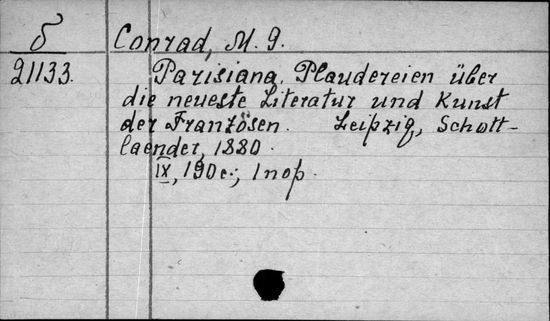 б Conrad, M. G.
21133. Parisiana. Plaudereien über
die neueste Literatur und Kunst
der Französen. Leipzig, Schott-
laender, 1880.
IX, 190 c., 1 пор.